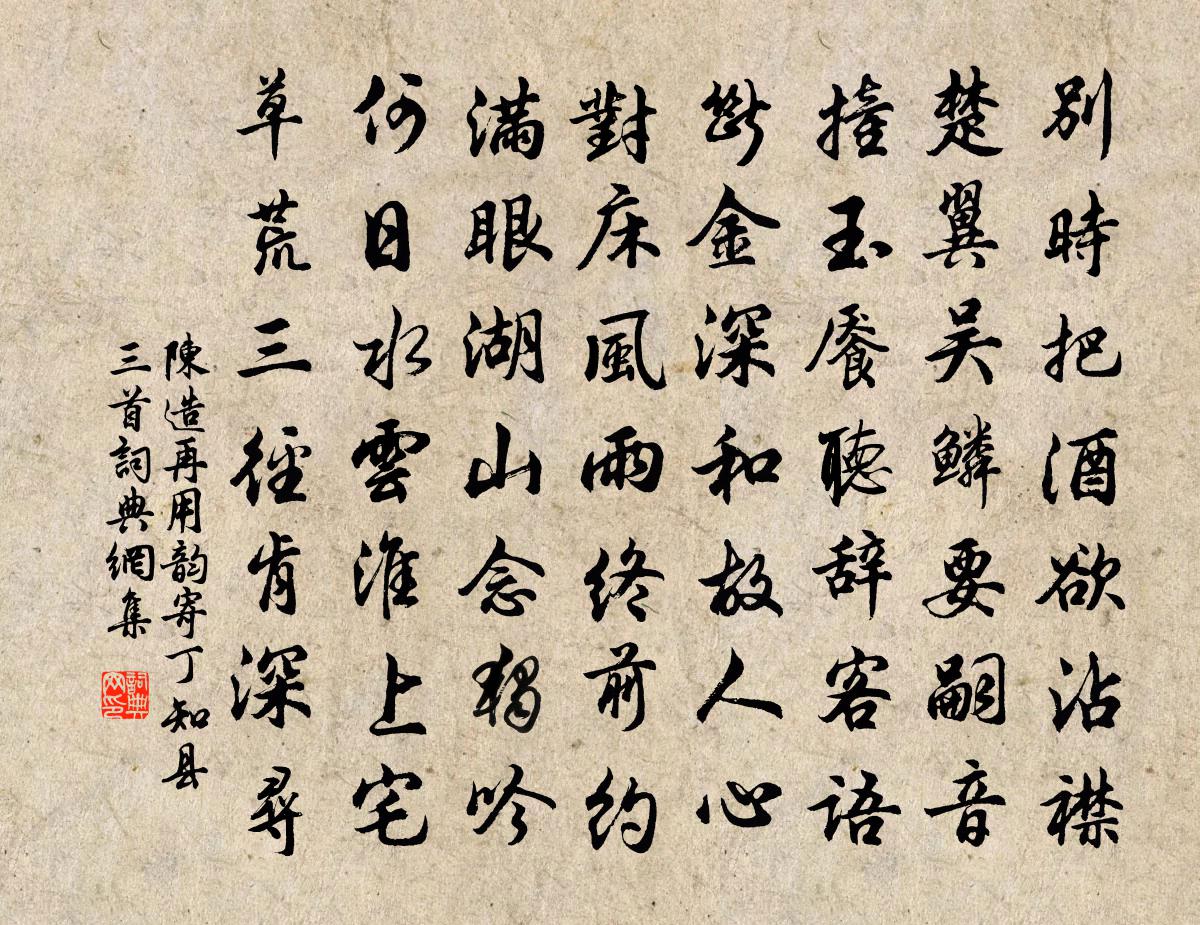 別時把酒欲沾襟
楚翼吴鱗要嗣音
撞玉餍聽辞客語
斷金深和故人心
對床風雨終前約
滿眼湖山念獨吟
何日水雲淮上宅
草荒三徑肯深尋
陳造再用韵寄丁知县
三首詞典網集
詞典网印